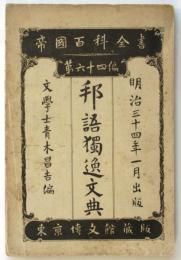 帝國百科全書
第六十四編
明治三十四年一月出版
邦語獨逸文典
文學士青木昌吉編
東京博文館蔵版